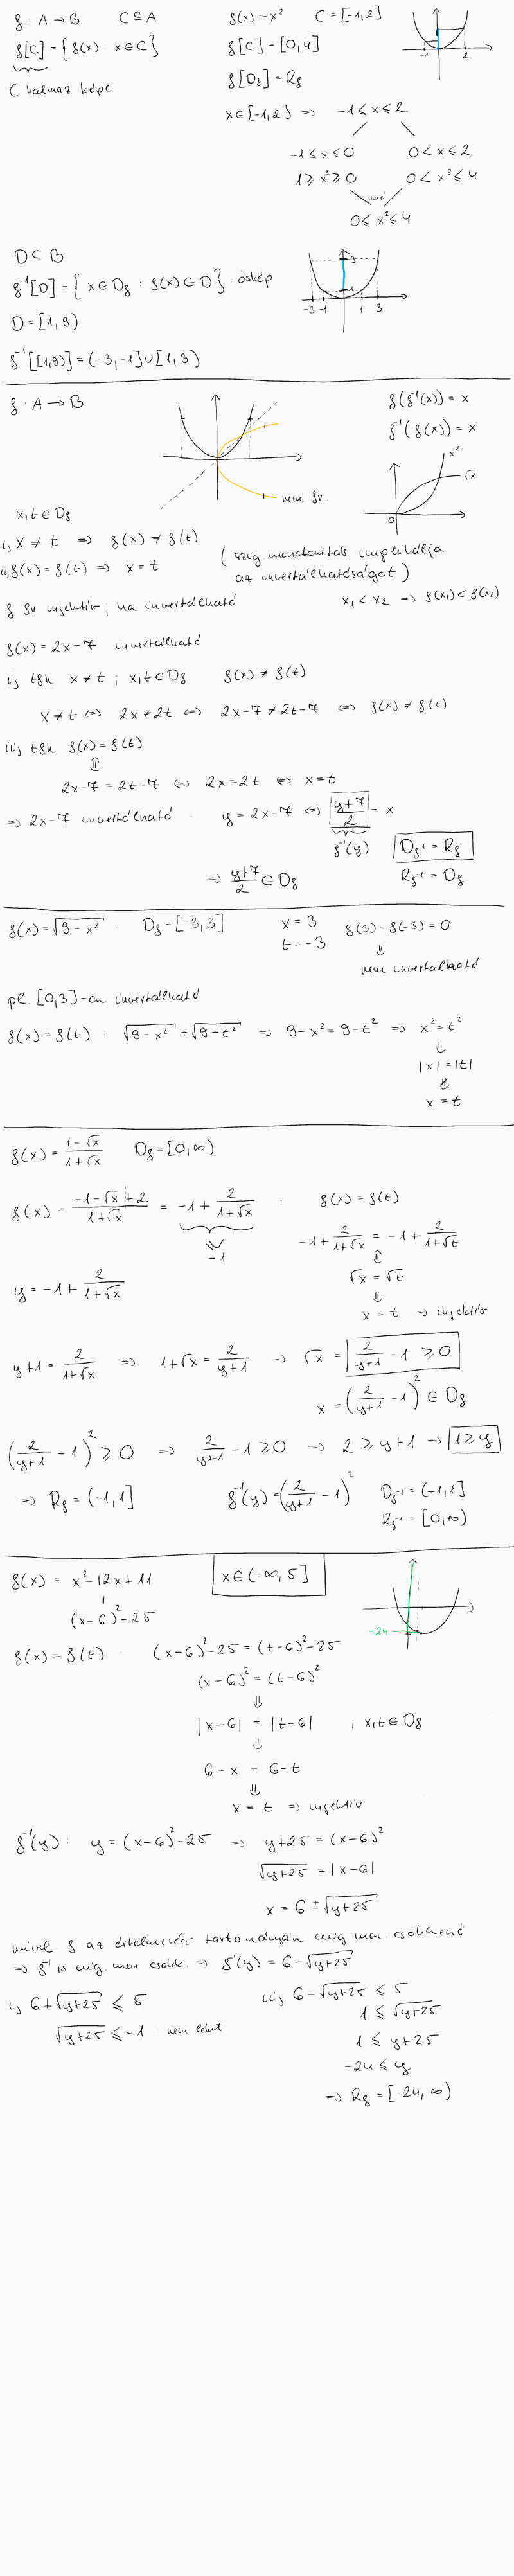 f: A → B    C ⊆ A
f[C] = {f(x) : x ∈ C}
C halmaz képe
f(x) = x²    C = [-1,2]
f[C] = [0,4]
f[Df] = Rf
x ∈ [-1,2] ⇒ -1 ≤ x ≤ 2
-1 ≤ x ≤ 0    0 < x ≤ 2
1 ≥ x² ≥ 0    0 < x² ≤ 4
unió
0 ≤ x² ≤ 4
-1    2
D ⊆ B
f⁻¹[D] = {x ∈ Df : f(x) ∈ D} őskép
D = [1,9)
f⁻¹[[1,9)] = (-3,-1] ∪ [1,3)
9
1
-3 -1    1 3
f: A → B
nem fv.
f(f⁻¹(x)) = x
f⁻¹(f(x)) = x
x²
√x
0
x,t ∈ Df
i, x ≠ t ⇒ f(x) ≠ f(t)
ii, f(x) = f(t) ⇒ x = t
(szig monotonitás implikálja
az invertálhatóságot)
x₁ < x₂ ⇒ f(x₁) < f(x₂)
f fv injektív, ha invertálható
f(x) = 2x-7 invertálható
i, tfh x ≠ t ; x,t ∈ Df    f(x) ≠ f(t)
x ≠ t ⇔ 2x ≠ 2t ⇔ 2x-7 ≠ 2t-7 ⇔ f(x) ≠ f(t)
ii, tfh f(x) = f(t)
⇕
2x-7 = 2t-7 ⇔ 2x = 2t ⇔ x = t
⇒ 2x-7 invertálható    y = 2x-7 ⇔ (y+7)/2 = x
f⁻¹(y)    Df⁻¹ = Rf
Rf⁻¹ = Df
⇒ (y+7)/2 ∈ Df
f(x) = √(9-x²)    Df = [-3,3]    x = 3    f(3) = f(-3) = 0
t = -3    ⇓
nem invertálható
pl. [0,3]-on invertálható
f(x) = f(t) : √(9-x²) = √(9-t²) ⇒ 9-x² = 9-t² ⇒ x² = t²
⇓
|x| = |t|
⇓
x = t
f(x) = (1-√x)/(1+√x)    Df = [0,∞)
f(x) = (-1-√x+2)/(1+√x) = -1 + 2/(1+√x) :    f(x) = f(t)
-1
-1 + 2/(1+√x) = -1 + 2/(1+√t)
⇕
√x = √t
⇓
x = t ⇒ injektív
y = -1 + 2/(1+√x)
y+1 = 2/(1+√x) ⇒ 1+√x = 2/(y+1) ⇒ √x = 2/(y+1) - 1 ≥ 0
x = (2/(y+1) - 1)² ∈ Df
(2/(y+1) - 1)² ≥ 0 ⇒ 2/(y+1) - 1 ≥ 0 ⇒ 2 ≥ y+1 ⇒ 1 ≥ y
⇒ Rf = (-1,1]    f⁻¹(y) = (2/(y+1) - 1)²    Df⁻¹ = (-1,1]
Rf⁻¹ = [0,∞)
f(x) = x²-12x+11    x ∈ (-∞,5]
(x-6)²-25
-24
f(x) = f(t) :    (x-6)²-25 = (t-6)²-25
(x-6)² = (t-6)²
⇓
|x-6| = |t-6|    ; x,t ∈ Df
⇓
6-x = 6-t
⇓
x = t ⇒ injektív
f⁻¹(y) :    y = (x-6)²-25 ⇒ y+25 = (x-6)²
√(y+25) = |x-6|
x = 6 ± √(y+25)
mivel f az értelmezési tartományán szig. mon. csökkenő
⇒ f⁻¹ is szig. mon csökk. ⇒ f⁻¹(y) = 6-√(y+25)
i, 6+√(y+25) ≤ 5
√(y+25) ≤ -1 nem lehet
ii, 6-√(y+25) ≤ 5
1 ≤ √(y+25)
1 ≤ y+25
-24 ≤ y
⇒ Rf = [-24,∞)